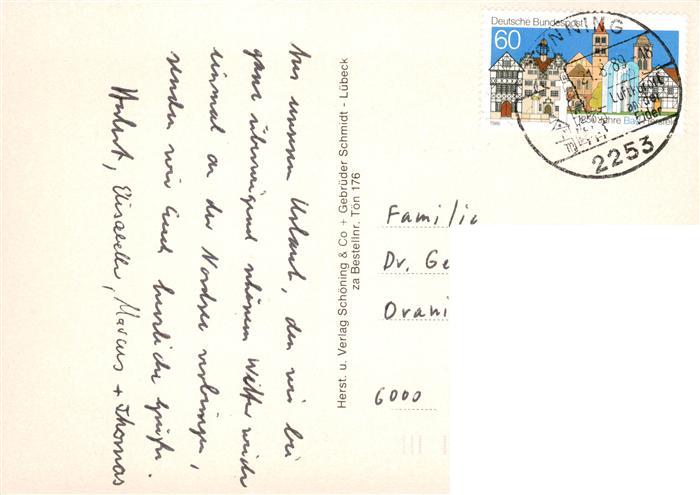 Aus unserem Urlaub, den wir bei
ganz überwiegend schönem Wetter wieder
einmal an der Nordsee verbringen,
senden wir Euch herzliche Grüße.
Hubert, Elisabeth, Marcus + Thomas
Herst. u. Verlag Schöning & Co + Gebrüder Schmidt - Lübeck
za Bestellnr. Tön 176
Deutsche Bundespost
60
1250 Jahre Bad Hersfeld
1986
TÖNNING
8.89
Luftkurort
an der
Eider
2253
Familie
Dr. Ge
Orani
6000